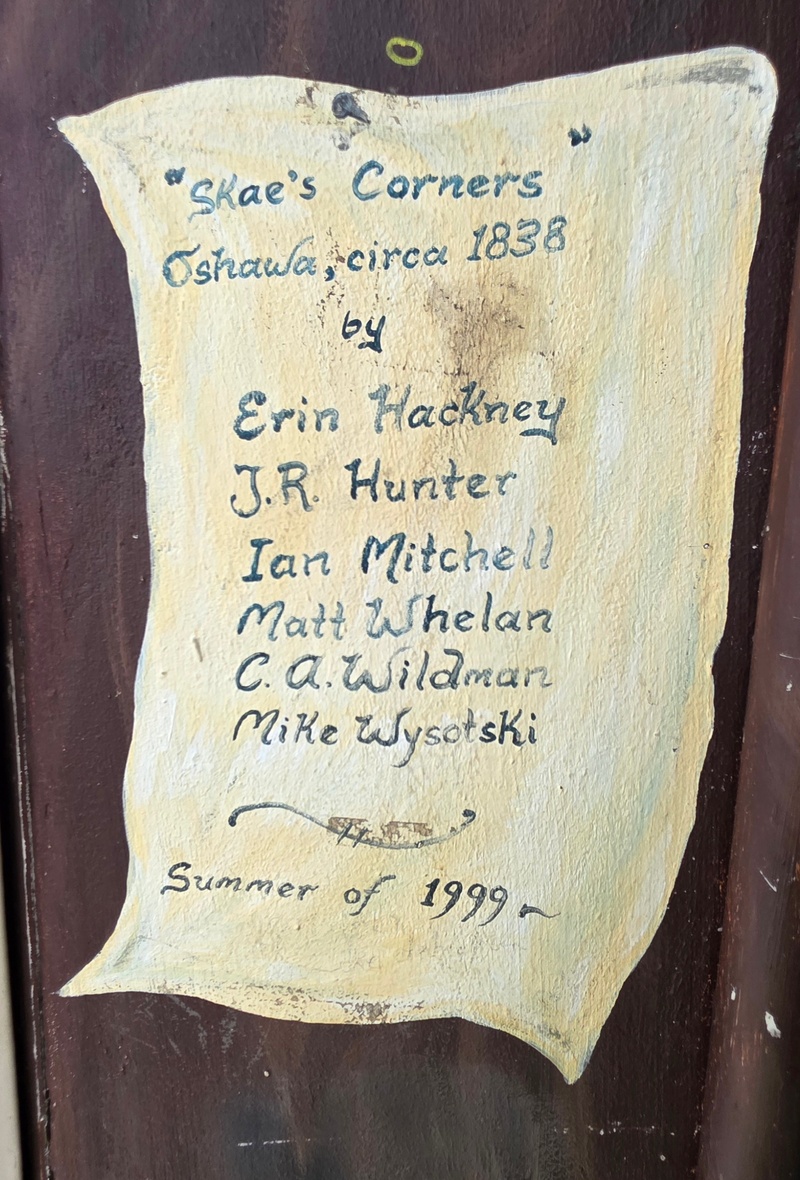 "Skae's Corners"
Oshawa, circa 1838
by
Erin Hackney
J.R. Hunter
Ian Mitchell
Matt Whelan
C. A. Wildman
Mike Wysotski
Summer of 1999